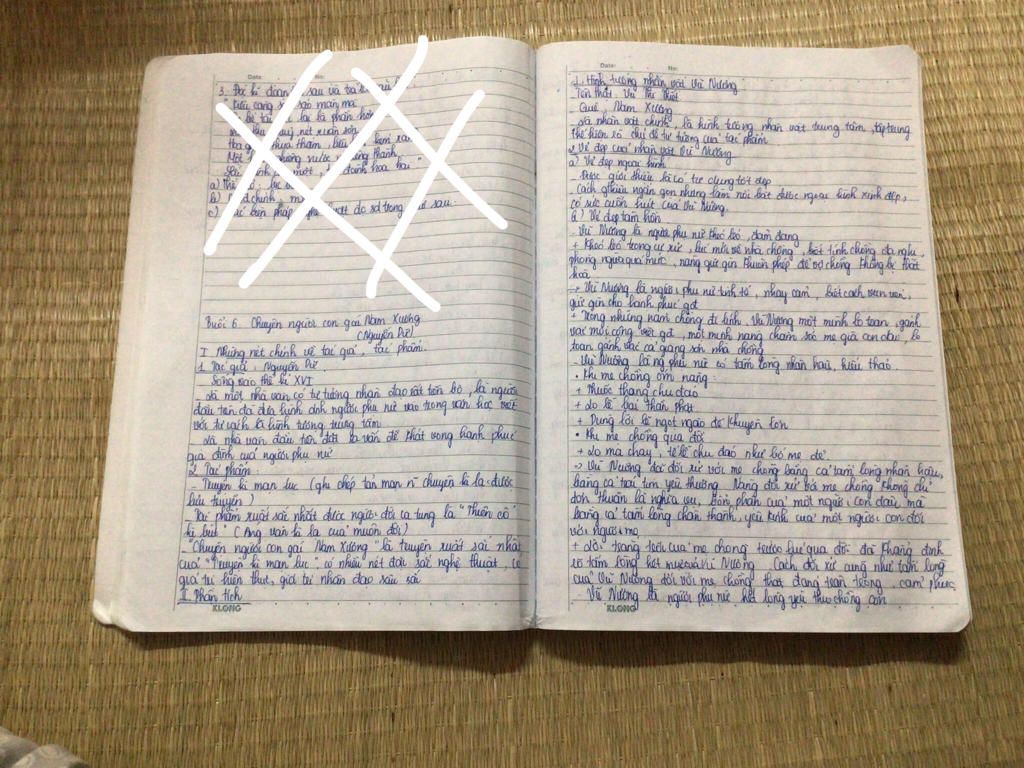 Date: No:
3. Đọc kĩ đoạn sau và trả
"Kiều càng sắc sảo mặn mà
bề tài lại là phần hơn
nét xuân sơn
Hoa ghen thua thắm, liễu kém xanh
Một nước thành
một, hoạ hai"
a)
b)
c) biện pháp sd trong sau
Buổi 6. Chuyện người con gái Nam Xương
(Nguyễn Dữ)
I Những nét chính về tác giả, tác phẩm.
1. Tác giả: Nguyễn Dữ
Sống vào thế kỉ XVI
- Là một nhà văn có tư tưởng nhân đạo rất tiến bộ, là người
đầu tiên đã đưa hình ảnh người phụ nữ vào trong văn học viết
với tư cách là hình tượng trung tâm
- Là nhà văn đầu tiên đặt ra vấn đề khát vọng hạnh phúc
gia đình của người phụ nữ
2. Tác phẩm:
- Truyền kì mạn lục (ghi chép tản mạn n~ chuyện kì lạ được
lưu truyền)
Tác phẩm xuất sắc nhất được người đời ca tụng là "Thiên cổ
kì bút" (Áng văn kì lạ của muôn đời)
- "Chuyện người con gái Nam Xương" là truyện xuất sắc nhất
của "Truyền kì mạn lục" có nhiều nét đặc sắc nghệ thuật, có
giá trị hiện thực, giá trị nhân đạo sâu sắc
II. Phân tích
KLONG
Date: No:
1. Hình tượng nhân vật Vũ Nương
Tên thật: Vũ Thị Thiết
Quê: Nam Xương
- Là nhân vật chính, là hình tượng nhân vật trung tâm, tập trung
thể hiện rõ chủ đề tư tưởng của tác phẩm
2. Vẻ đẹp của nhân vật Vũ Nương
a) Vẻ đẹp ngoại hình
- Được giới thiệu là có tư dung tốt đẹp
- Cách ghiêu ngắn gọn nhưng làm nổi bật được ngoại hình xinh đẹp,
có sức cuốn hút của Vũ Nương.
b) Vẻ đẹp tâm hồn
- Vũ Nương là người phụ nữ khéo léo, đảm đang
+ Khéo léo trong cư xử, lúc mới về nhà chồng, biết tính chồng đa nghi,
phòng ngừa quá mức, nàng giữ gìn khuôn phép để vợ chồng không bị thất
hoà
-> Vũ Nương là người phụ nữ tinh tế, nhạy cảm, biết cách vun vén,
giữ gìn cho hạnh phúc gđ
+ Trong những năm chồng đi lính, Vũ Nương một mình lo toan, gánh
vác mọi công việc gđ, một mình nàng chăm sóc mẹ già con dại, lo
toan gánh vác cả giang sơn nhà chồng
- Vũ Nương là ng phụ nữ có tấm lòng nhân hậu, hiếu thảo
• Khi mẹ chồng ốm nàng:
+ Thuốc thang chu đáo
+ Lo lễ bái thần Phật
+ Dùng lời lẽ ngọt ngào để khuyên lơn
• Khi mẹ chồng qua đời
+ Lo ma chay, tế lễ chu đáo như bố mẹ đẻ.
=> Vũ Nương đã đối xử với mẹ chồng bằng cả tấm lòng nhân hậu,
bằng cả trái tim yêu thương. Nàng đối xử với mẹ chồng không chỉ
đơn thuần là nghĩa vụ, bổn phận của một người con dâu, mà
bằng cả tấm lòng chân thành, yêu kính của một người con đối
với người mẹ
+ Lời trăng trối của mẹ chồng trước lúc qua đời đã khẳng định
rõ tấm lòng hết mực của Vũ Nương. Cách đối xử cũng như tấm lòng
của Vũ Nương đối với mẹ chồng thật đáng trân trọng, cảm phục
- Vũ Nương là người phụ nữ hết lòng yêu thg chồng con
KLONG